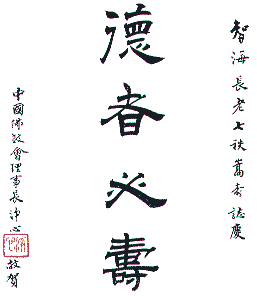 智海長老七秩嵩壽誌慶
德者必壽
中國佛教會理事長淨心
敬賀